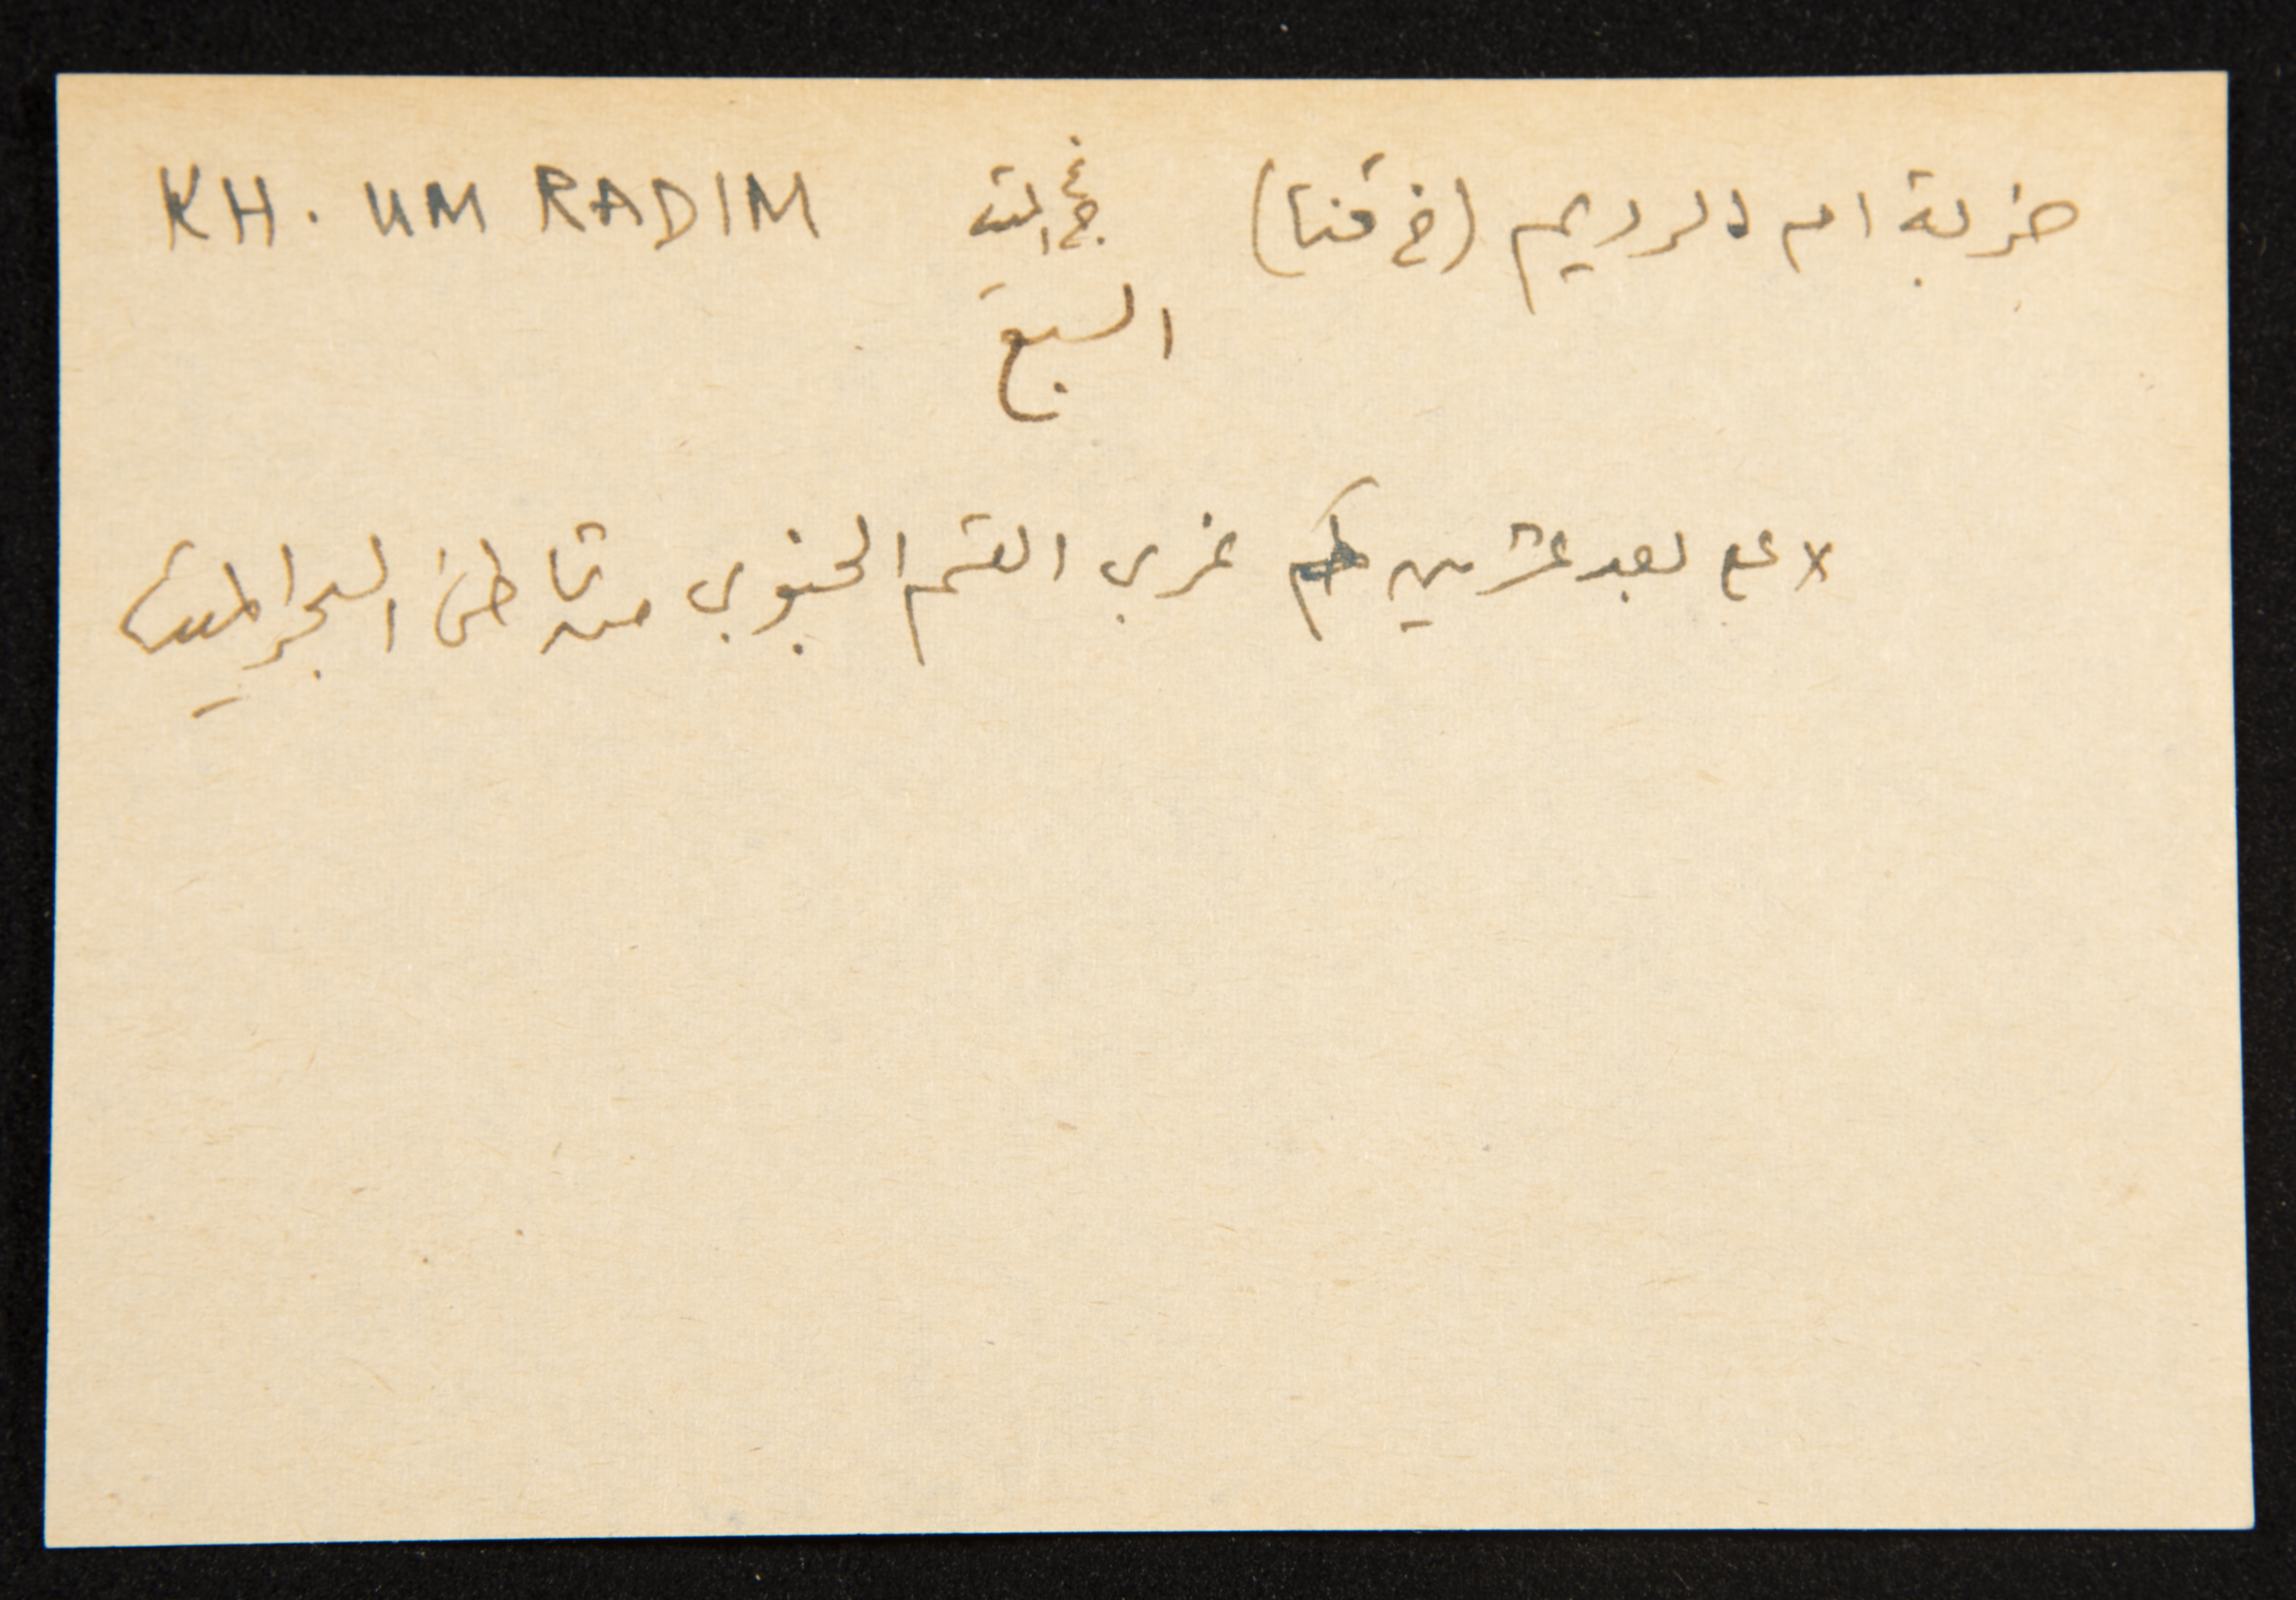 خربة ام الرديم (خ قنا) غ ج الميت KH. UM RADIM
السبع
x على بعد عشرين كم غربي القسم الجنوبي من شاطئ البحر الميت